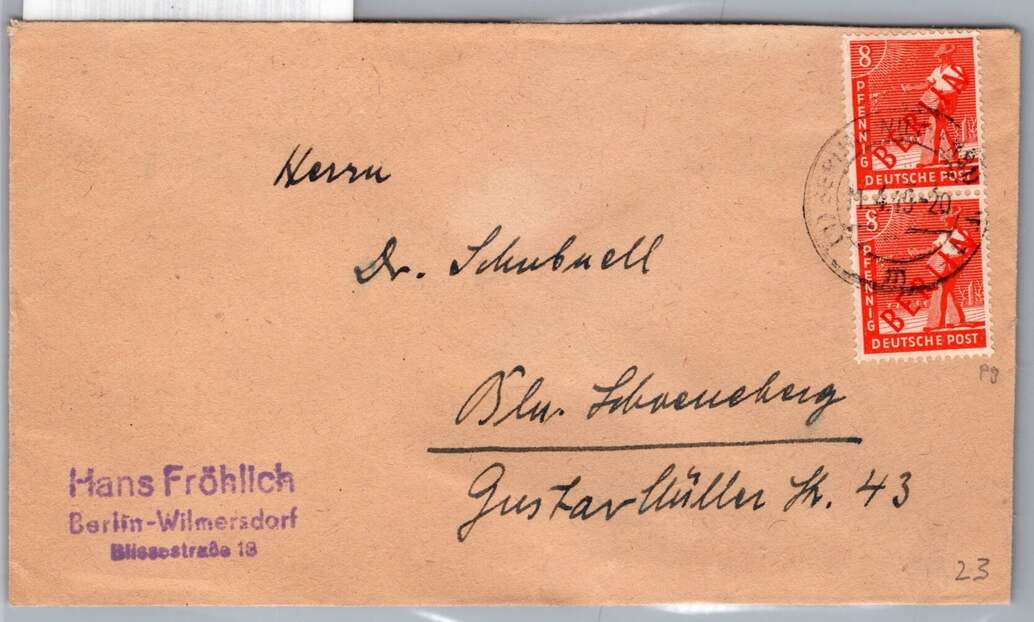 8
PFENNIG
BERLIN
DEUTSCHE POST
8
PFENNIG
BERLIN
DEUTSCHE POST
Herrn
Dr.
Bln. Schoeneberg
Gustav Müller Str. 43
Hans Fröhlich
Berlin-Wilmersdorf
Blissestraße 18
pg
23